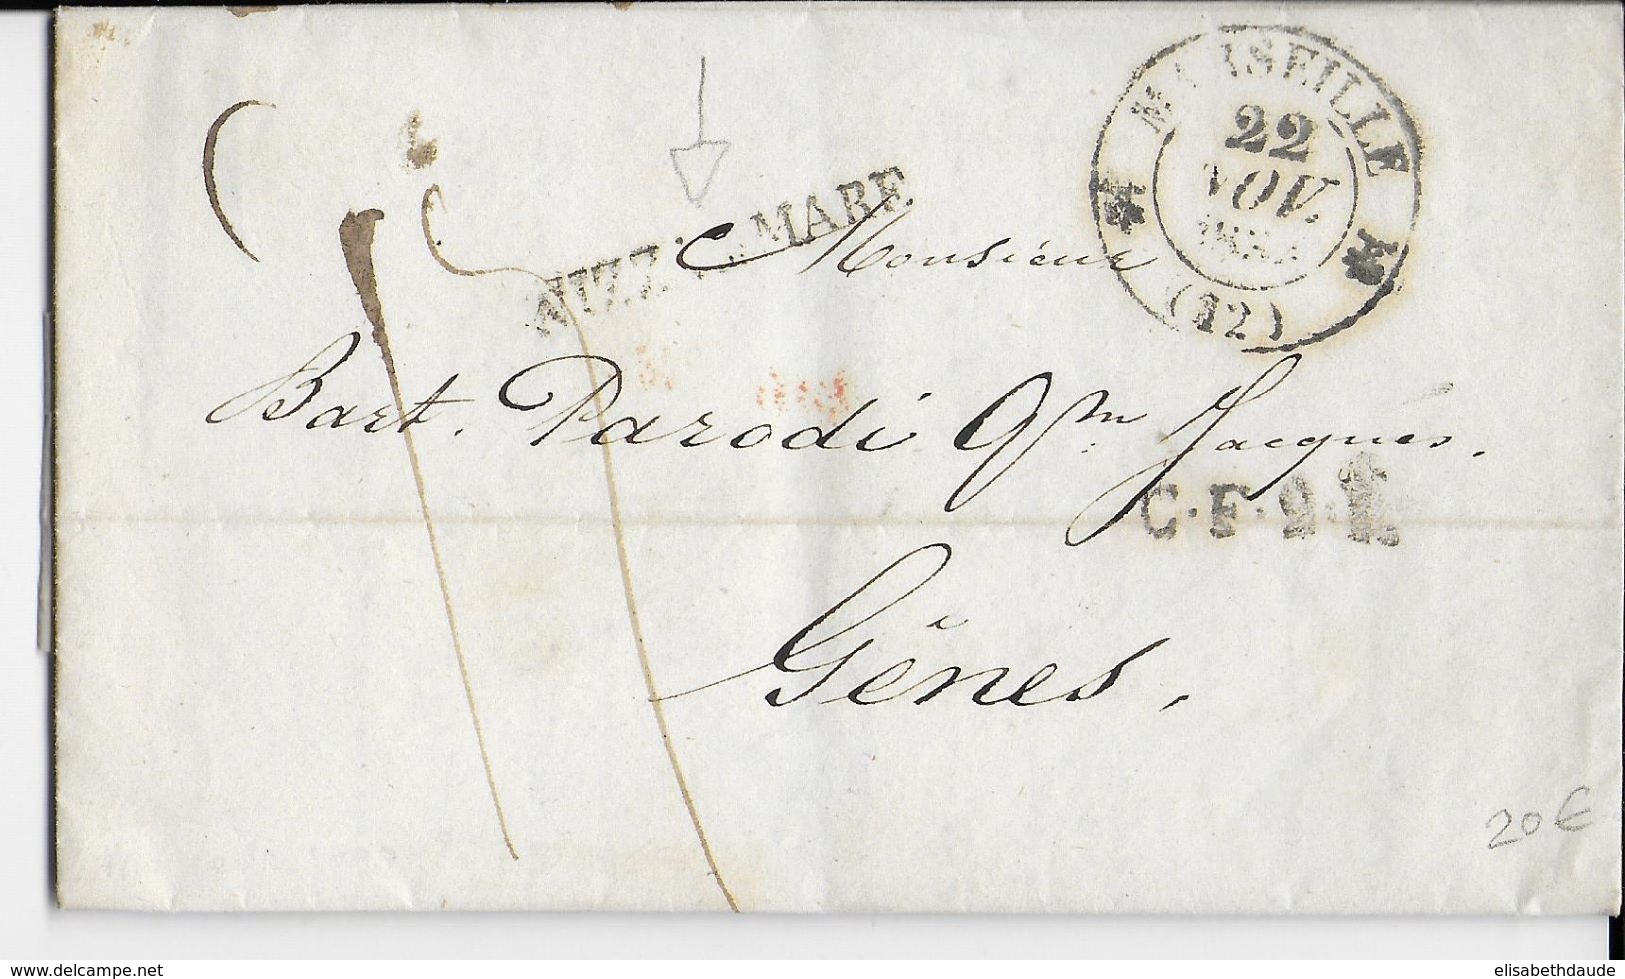 MARSEILLE
22
NOV.
(12)
NIZZA MARE
Monsieur
Bart. Parodi qm Jacques.
C.F.2.
Gênes.
20€
www.delcampe.net
elisabethdaude